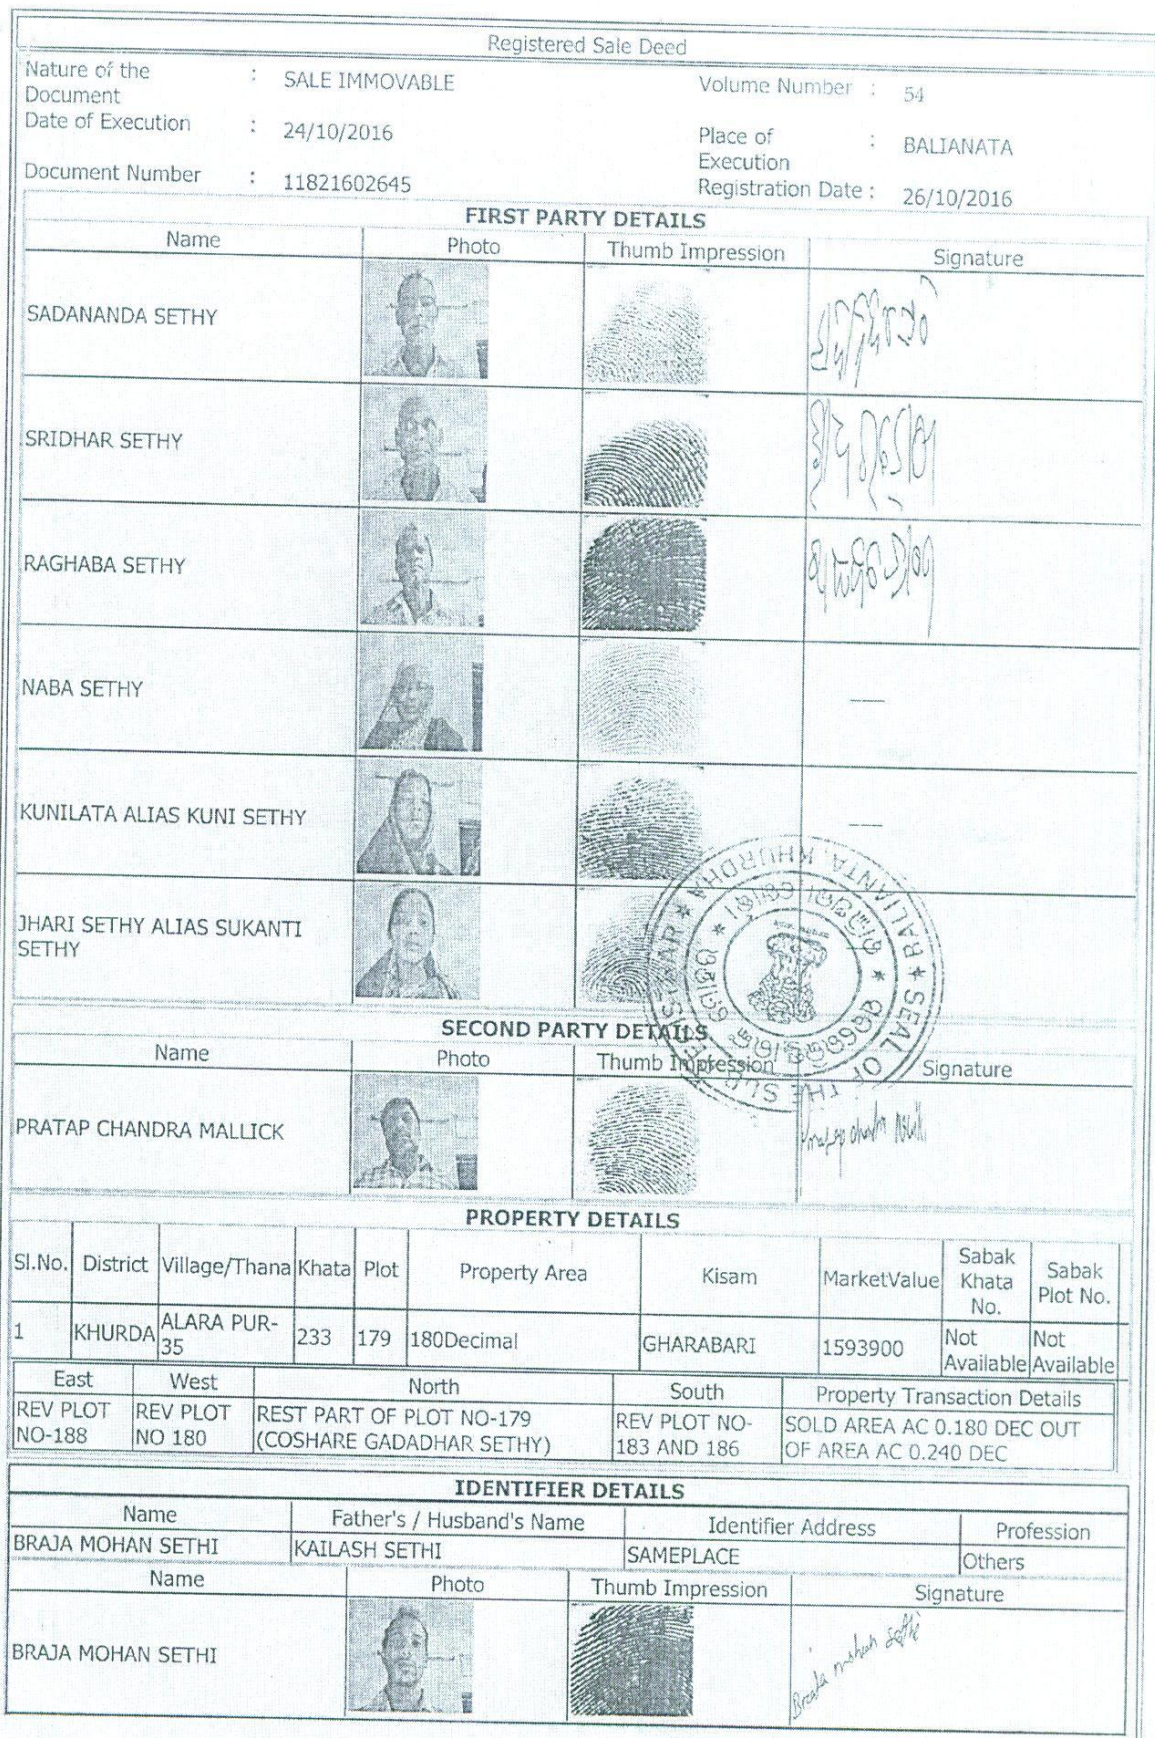 Registered Sale Deed
Nature of the Document : SALE IMMOVABLE Volume Number : 54
Date of Execution : 24/10/2016 Place of Execution : BALIANATA
Document Number : 11821602645 Registration Date : 26/10/2016
FIRST PARTY DETAILS
Name Photo Thumb Impression Signature
SADANANDA SETHY
SRIDHAR SETHY
RAGHABA SETHY
NABA SETHY
KUNILATA ALIAS KUNI SETHY
JHARI SETHY ALIAS SUKANTI
SETHY
SEAL OF THE SUB-REGISTRAR ★ BALIANTA, KHURDHA ★
SECOND PARTY DETAILS
Name Photo Thumb Impression Signature
PRATAP CHANDRA MALLICK
PROPERTY DETAILS
Sl.No. District Village/Thana Khata Plot Property Area Kisam MarketValue Sabak Khata No. Sabak Plot No.
1 KHURDA ALARA PUR-35 233 179 180Decimal GHARABARI 1593900 Not Available Not Available
East West North South Property Transaction Details
REV PLOT NO-188 REV PLOT NO 180 REST PART OF PLOT NO-179 (COSHARE GADADHAR SETHY) REV PLOT NO-183 AND 186 SOLD AREA AC 0.180 DEC OUT OF AREA AC 0.240 DEC
IDENTIFIER DETAILS
Name Father's / Husband's Name Identifier Address Profession
BRAJA MOHAN SETHI KAILASH SETHI SAMEPLACE Others
Name Photo Thumb Impression Signature
BRAJA MOHAN SETHI Braja mohan sethi